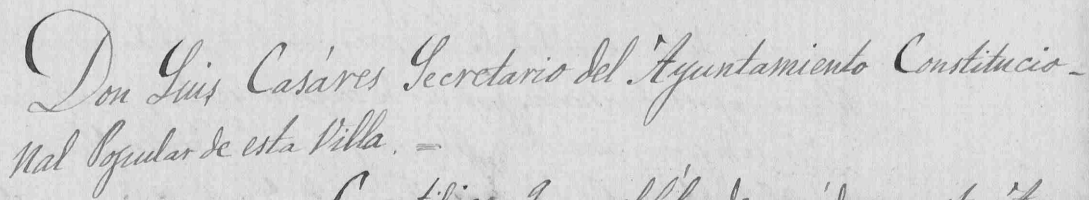 Don Luis Casáres Secretario del Ayuntamiento Constitucio-
nal Popular de esta Villa. =